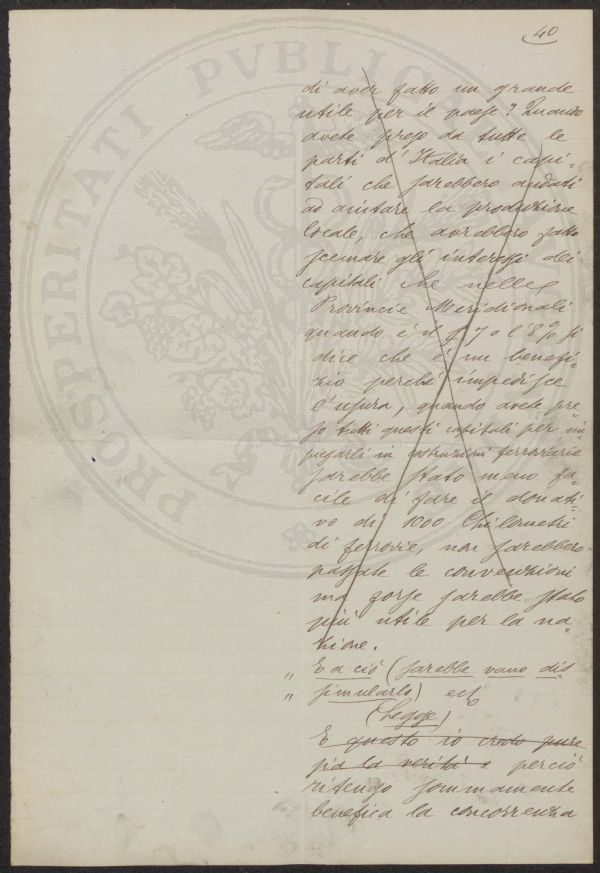 40
PROSPERITATI PVBLICAE
di aver fatto un grande
utile per il paese? Quando
avete preso da tutte le
parti d'Italia i capi-
tali che sarebbero andati
ad aiutare la produzione
locale, che avrebbero fatto
scemare gli interessi dei
capitali che nelle
Provincie Meridionali
quando è il 7 o l'8% si
dice che è un benefi-
zio perché impedisce
l'usura, quando avete pre-
so tutti questi capitali per im-
piegarli in costruzioni ferroviarie
sarebbe stato meno fa-
cile di fare il donati-
vo di 1000 Chilometri
di ferrovie, non sarebbero
passate le convenzioni
ma forse sarebbe stato
più utile per la na-
zione.
" E a ciò (sarebbe vano dis-
" simularlo) ect
(Legge)
E questo io credo pure
sia la verità e perciò
ritengo sommamente
benefica la concorrenza